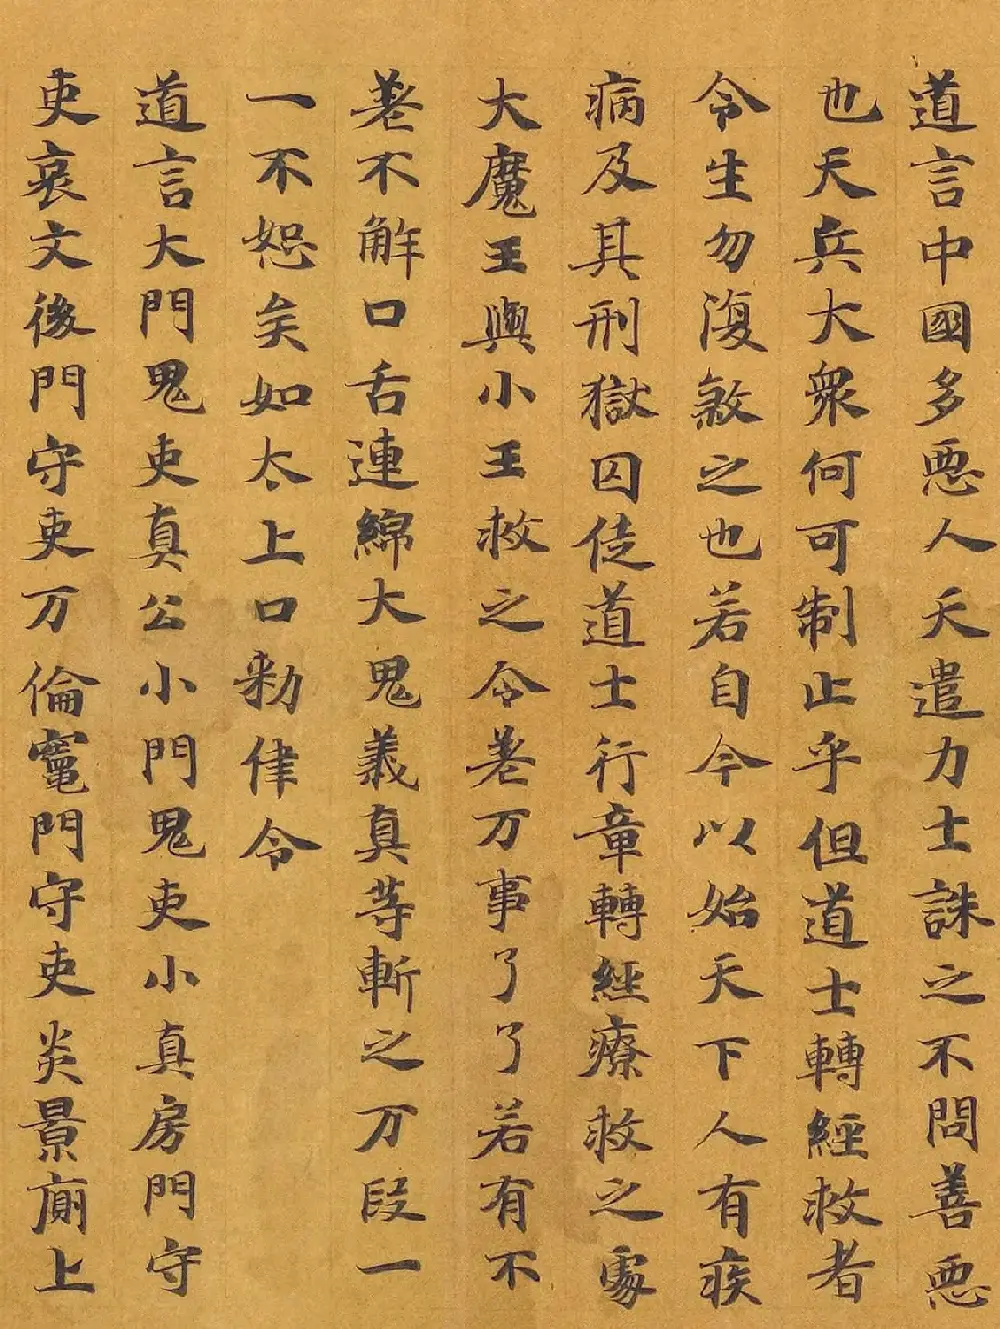 道言中國多惡人天遣力士誅之不問善惡
也天兵大衆何可制止乎但道士轉經救者
令生勿復煞之也若自今以始天下人有疾
病及其刑獄囚徒道士行章轉經療救之處
大魔王與小王救之令差万事了了若有不
差不解口舌連綿大鬼義真等斬之万段一
一不恕矣如太上口勑律令
道言大門鬼吏真公小門鬼吏小真房門守
吏哀文後門守吏万倫竈門守吏炎景廁上